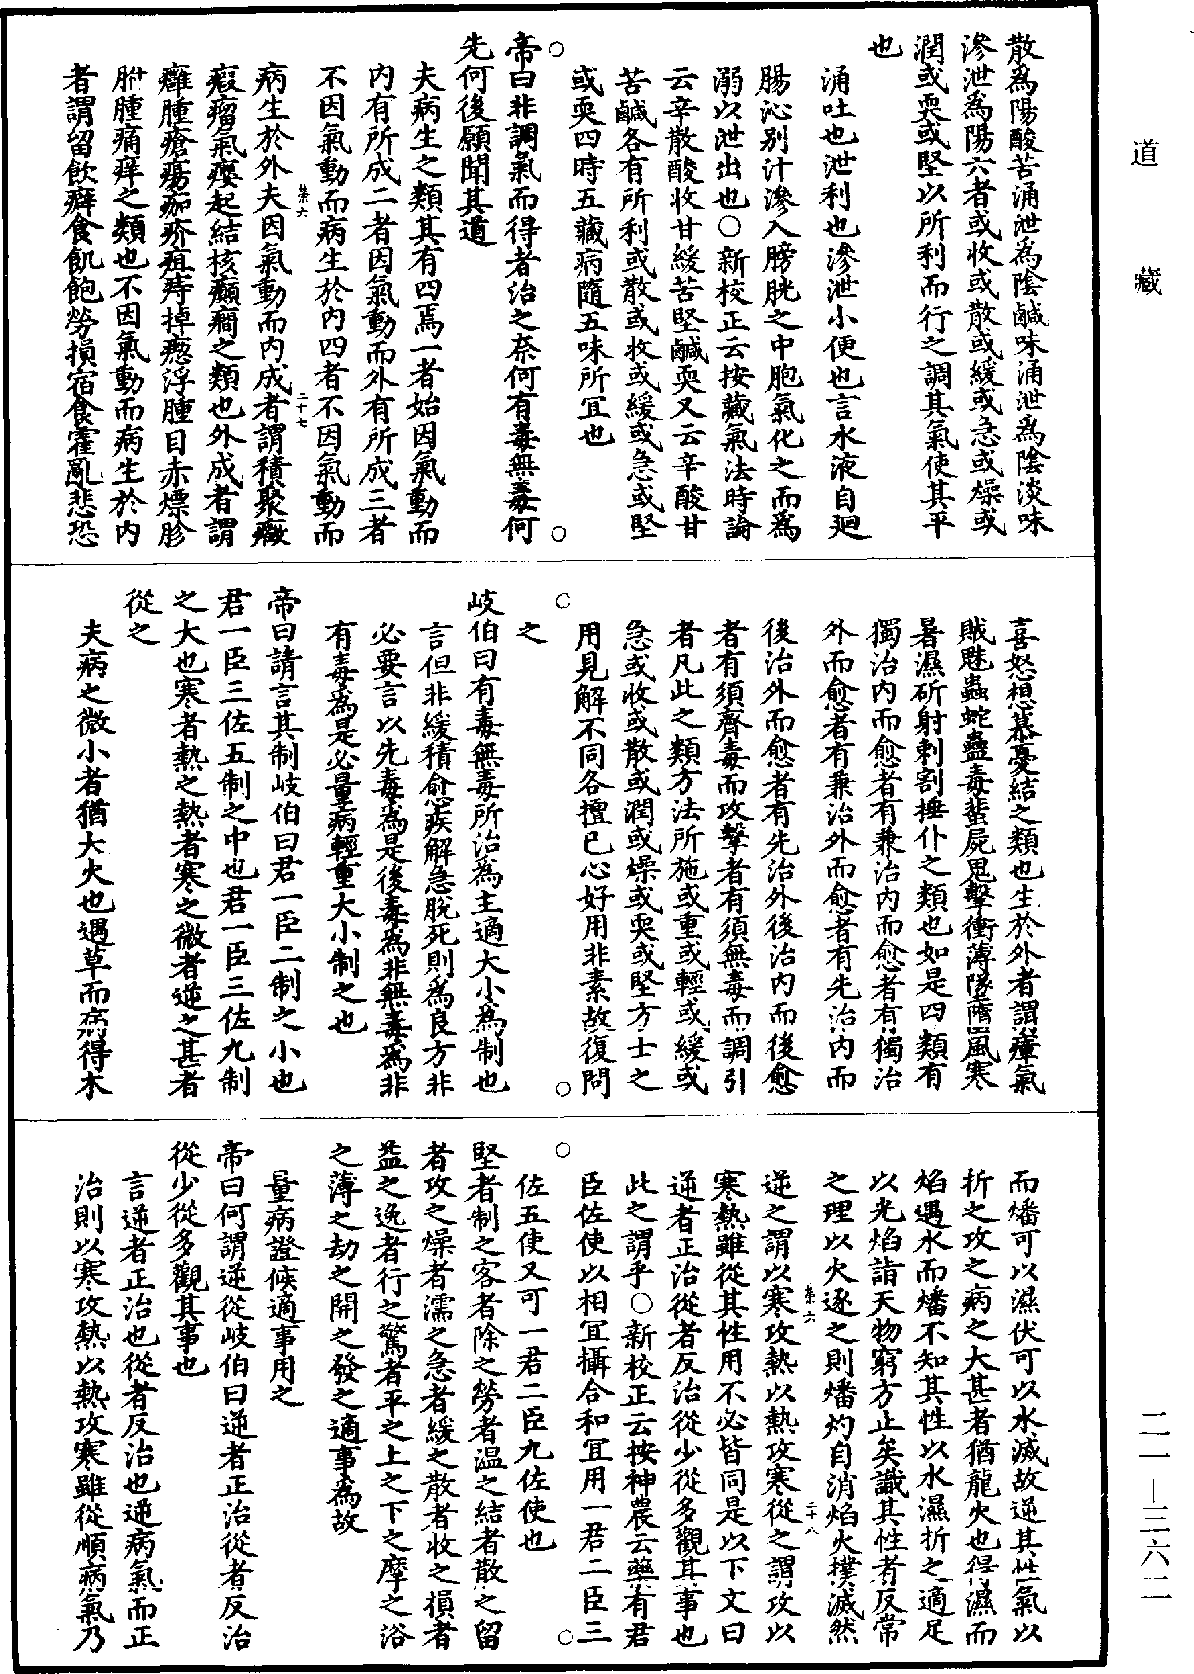 道藏
二一－三六二
散爲陽酸苦涌泄爲陰鹹味涌泄爲陰淡味
滲泄爲陽六者或收或散或緩或急或燥或
潤或耎或堅以所利而行之調其氣使其平
也
涌吐也泄利也滲泄小便也言水液自廻
腸沁別汁滲入膀胱之中胞氣化之而爲
溺以泄出也○新校正云按藏氣法時論
云辛散酸收甘緩苦堅鹹耎又云辛酸甘
苦鹹各有所利或散或收或緩或急或堅
或耎四時五藏病隨五味所宜也
○
○
帝曰非調氣而得者治之奈何有毒無毒何
先何後願聞其道
夫病生之類其有四焉一者始因氣動而
內有所成二者因氣動而外有所成三者
不因氣動而病生於內四者不因氣動而
卷六
二十七
病生於外夫因氣動而內成者謂積聚癥
瘕瘤氣癭起結核癲癇之類也外成者謂
癰腫瘡瘍痂疥疽痔掉瘛浮腫目赤熛胗
胕腫痛痒之類也不因氣動而病生於內
者謂留飲癖食飢飽勞損宿食霍亂悲恐
喜怒想慕憂結之類也生於外者謂瘴氣
賊魅蟲蛇蠱毒蜚屍鬼擊衝薄墜墮風寒
暑濕斫射刺割捶仆之類也如是四類有
獨治內而愈者有兼治內而愈者有獨治
外而愈者有兼治外而愈者有先治內而
後治外而愈者有先治外後治內而後愈
者有須齊毒而攻擊者有須無毒而調引
者凡此之類方法所施或重或輕或緩或
急或收或散或潤或燥或耎或堅方士之
用見解不同各擅已心好用非素故復問
○
○
之
岐伯曰有毒無毒所治爲主適大小爲制也
言但非緩積愈疾解急脫死則爲良方非
必要言以先毒爲是後毒爲非無毒爲非
有毒爲是必量病輕重大小制之也
帝曰請言其制岐伯曰君一臣二制之小也
君一臣三佐五制之中也君一臣三佐九制
之大也寒者熱之熱者寒之微者逆之甚者
從之
夫病之微小者猶大火也遇草而焫得木
而燔可以濕伏可以水滅故逆其性氣以
折之攻之病之大甚者猶龍火也得濕而
焰遇水而燔不知其性以水濕折之適足
以光焰詣天物窮方止矣識其性者反常
之理以火逐之則燔灼自消焰火撲滅然
卷六
二十八
逆之謂以寒攻熱以熱攻寒從之謂攻以
寒熱雖從其性用不必皆同是以下文曰
逆者正治從者反治從少從多觀其事也
此之謂乎○新校正云按神農云藥有君
臣佐使以相宜攝合和宜用一君二臣三
○
○
佐五使又可一君二臣九佐使也
堅者制之客者除之勞者温之結者散之留
者攻之燥者濡之急者緩之散者收之損者
益之逸者行之驚者平之上之下之摩之浴
之薄之劫之開之發之適事爲故
量病證候適事用之
帝曰何謂逆從岐伯曰逆者正治從者反治
從少從多觀其事也
言逆者正治也從者反治也逆病氣而正
治則以寒攻熱以熱攻寒雖從順病氣乃